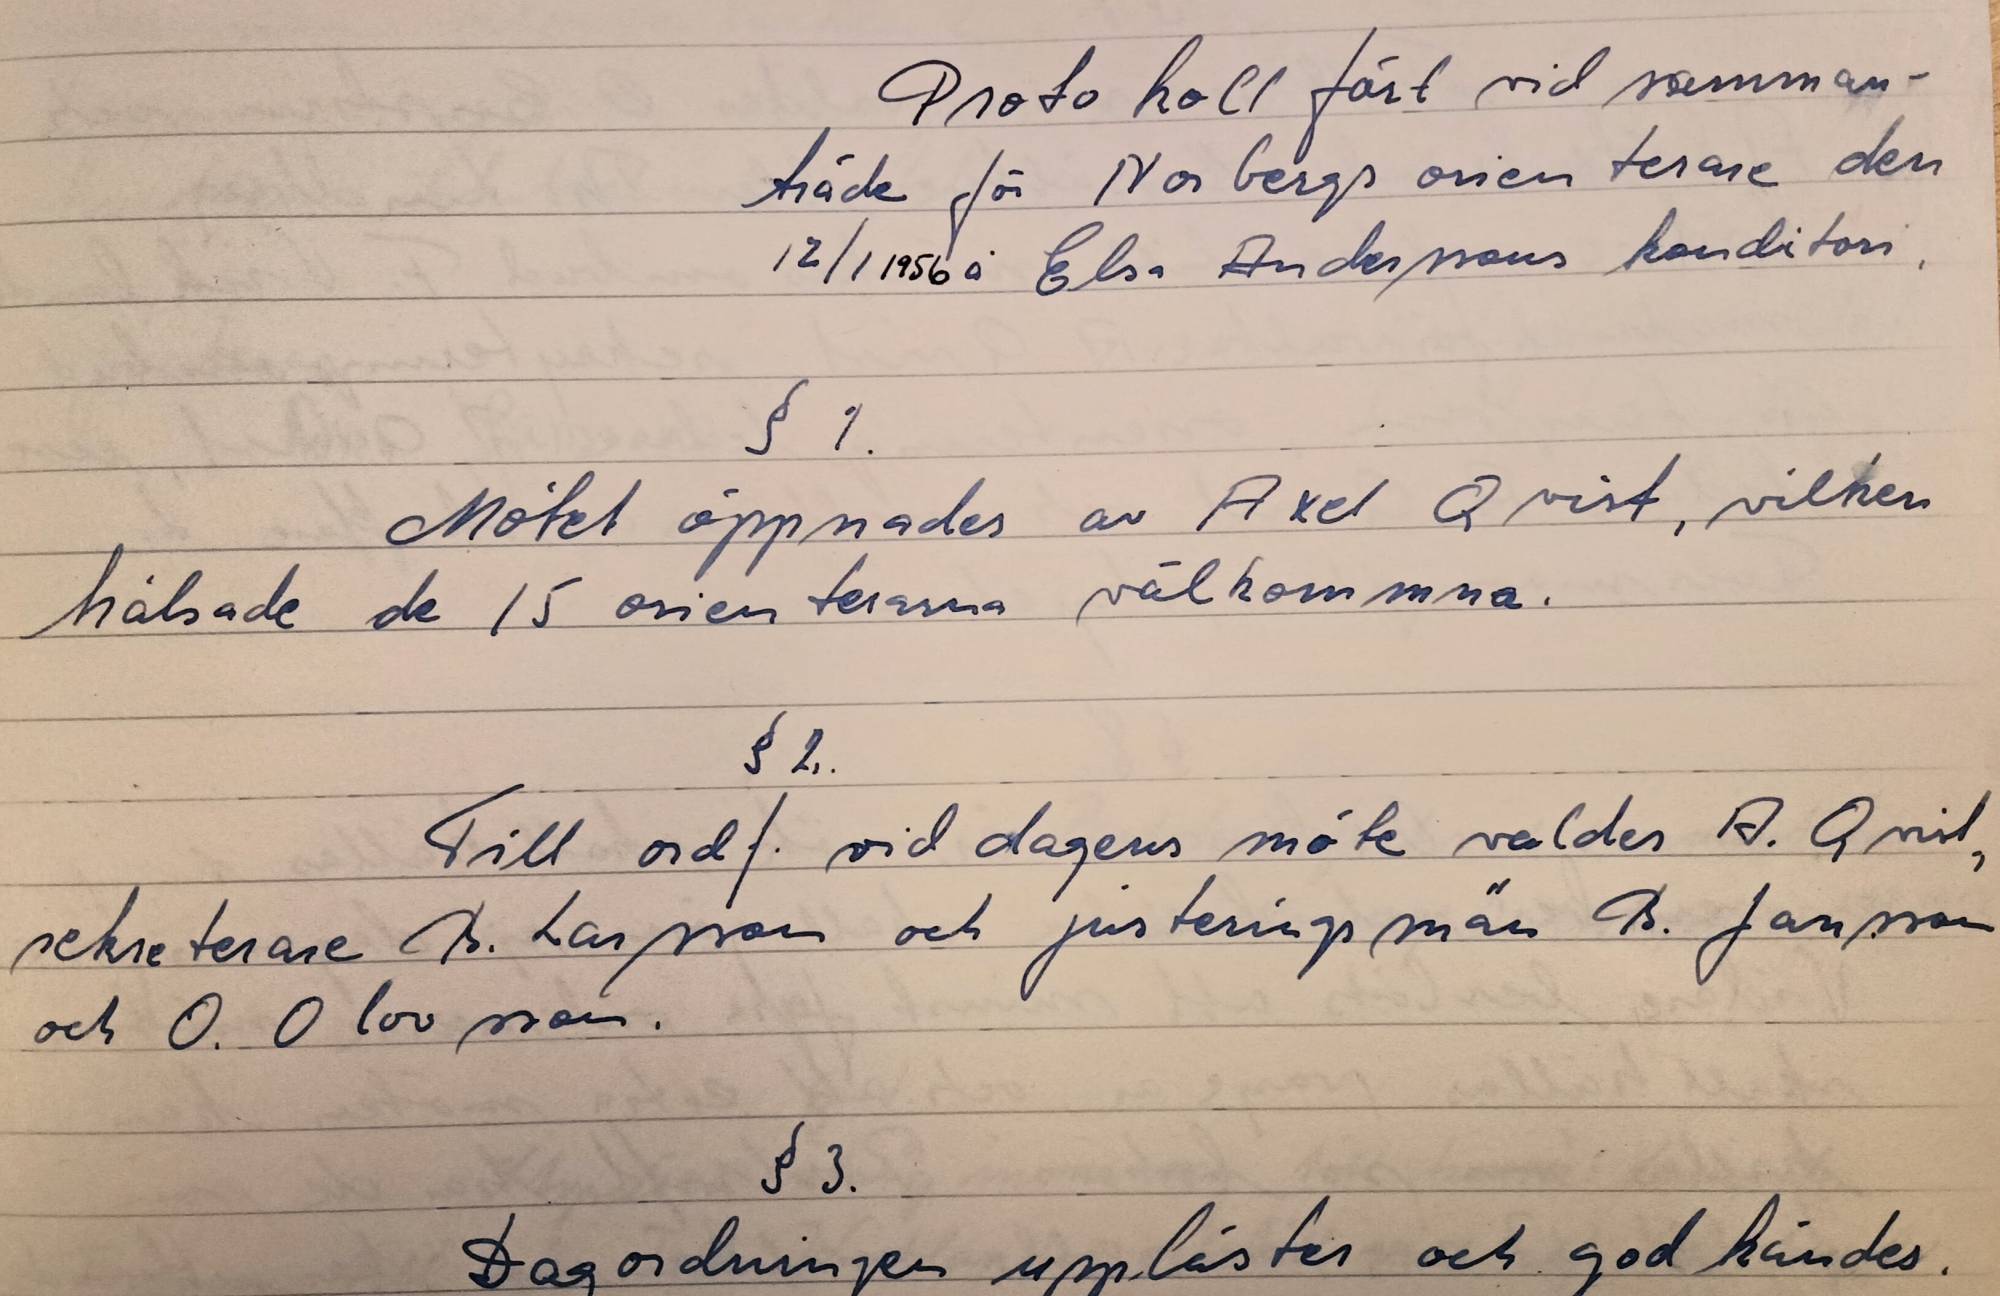 Protokoll fört vid samman-
träde för Norbergs orienterare den
12/1 1956 å Elsa Anderssons konditori.
§ 1.
Mötet öppnades av Axel Qvist, vilken
hälsade de 15 orienterarna välkommna.
§ 2.
Till ordf. vid dagens möte valdes A. Qvist,
sekreterare B. Larsson och justeringsmän B. Jansson
och O. Olovsson.
§ 3.
Dagordningen upplästes och godkändes.